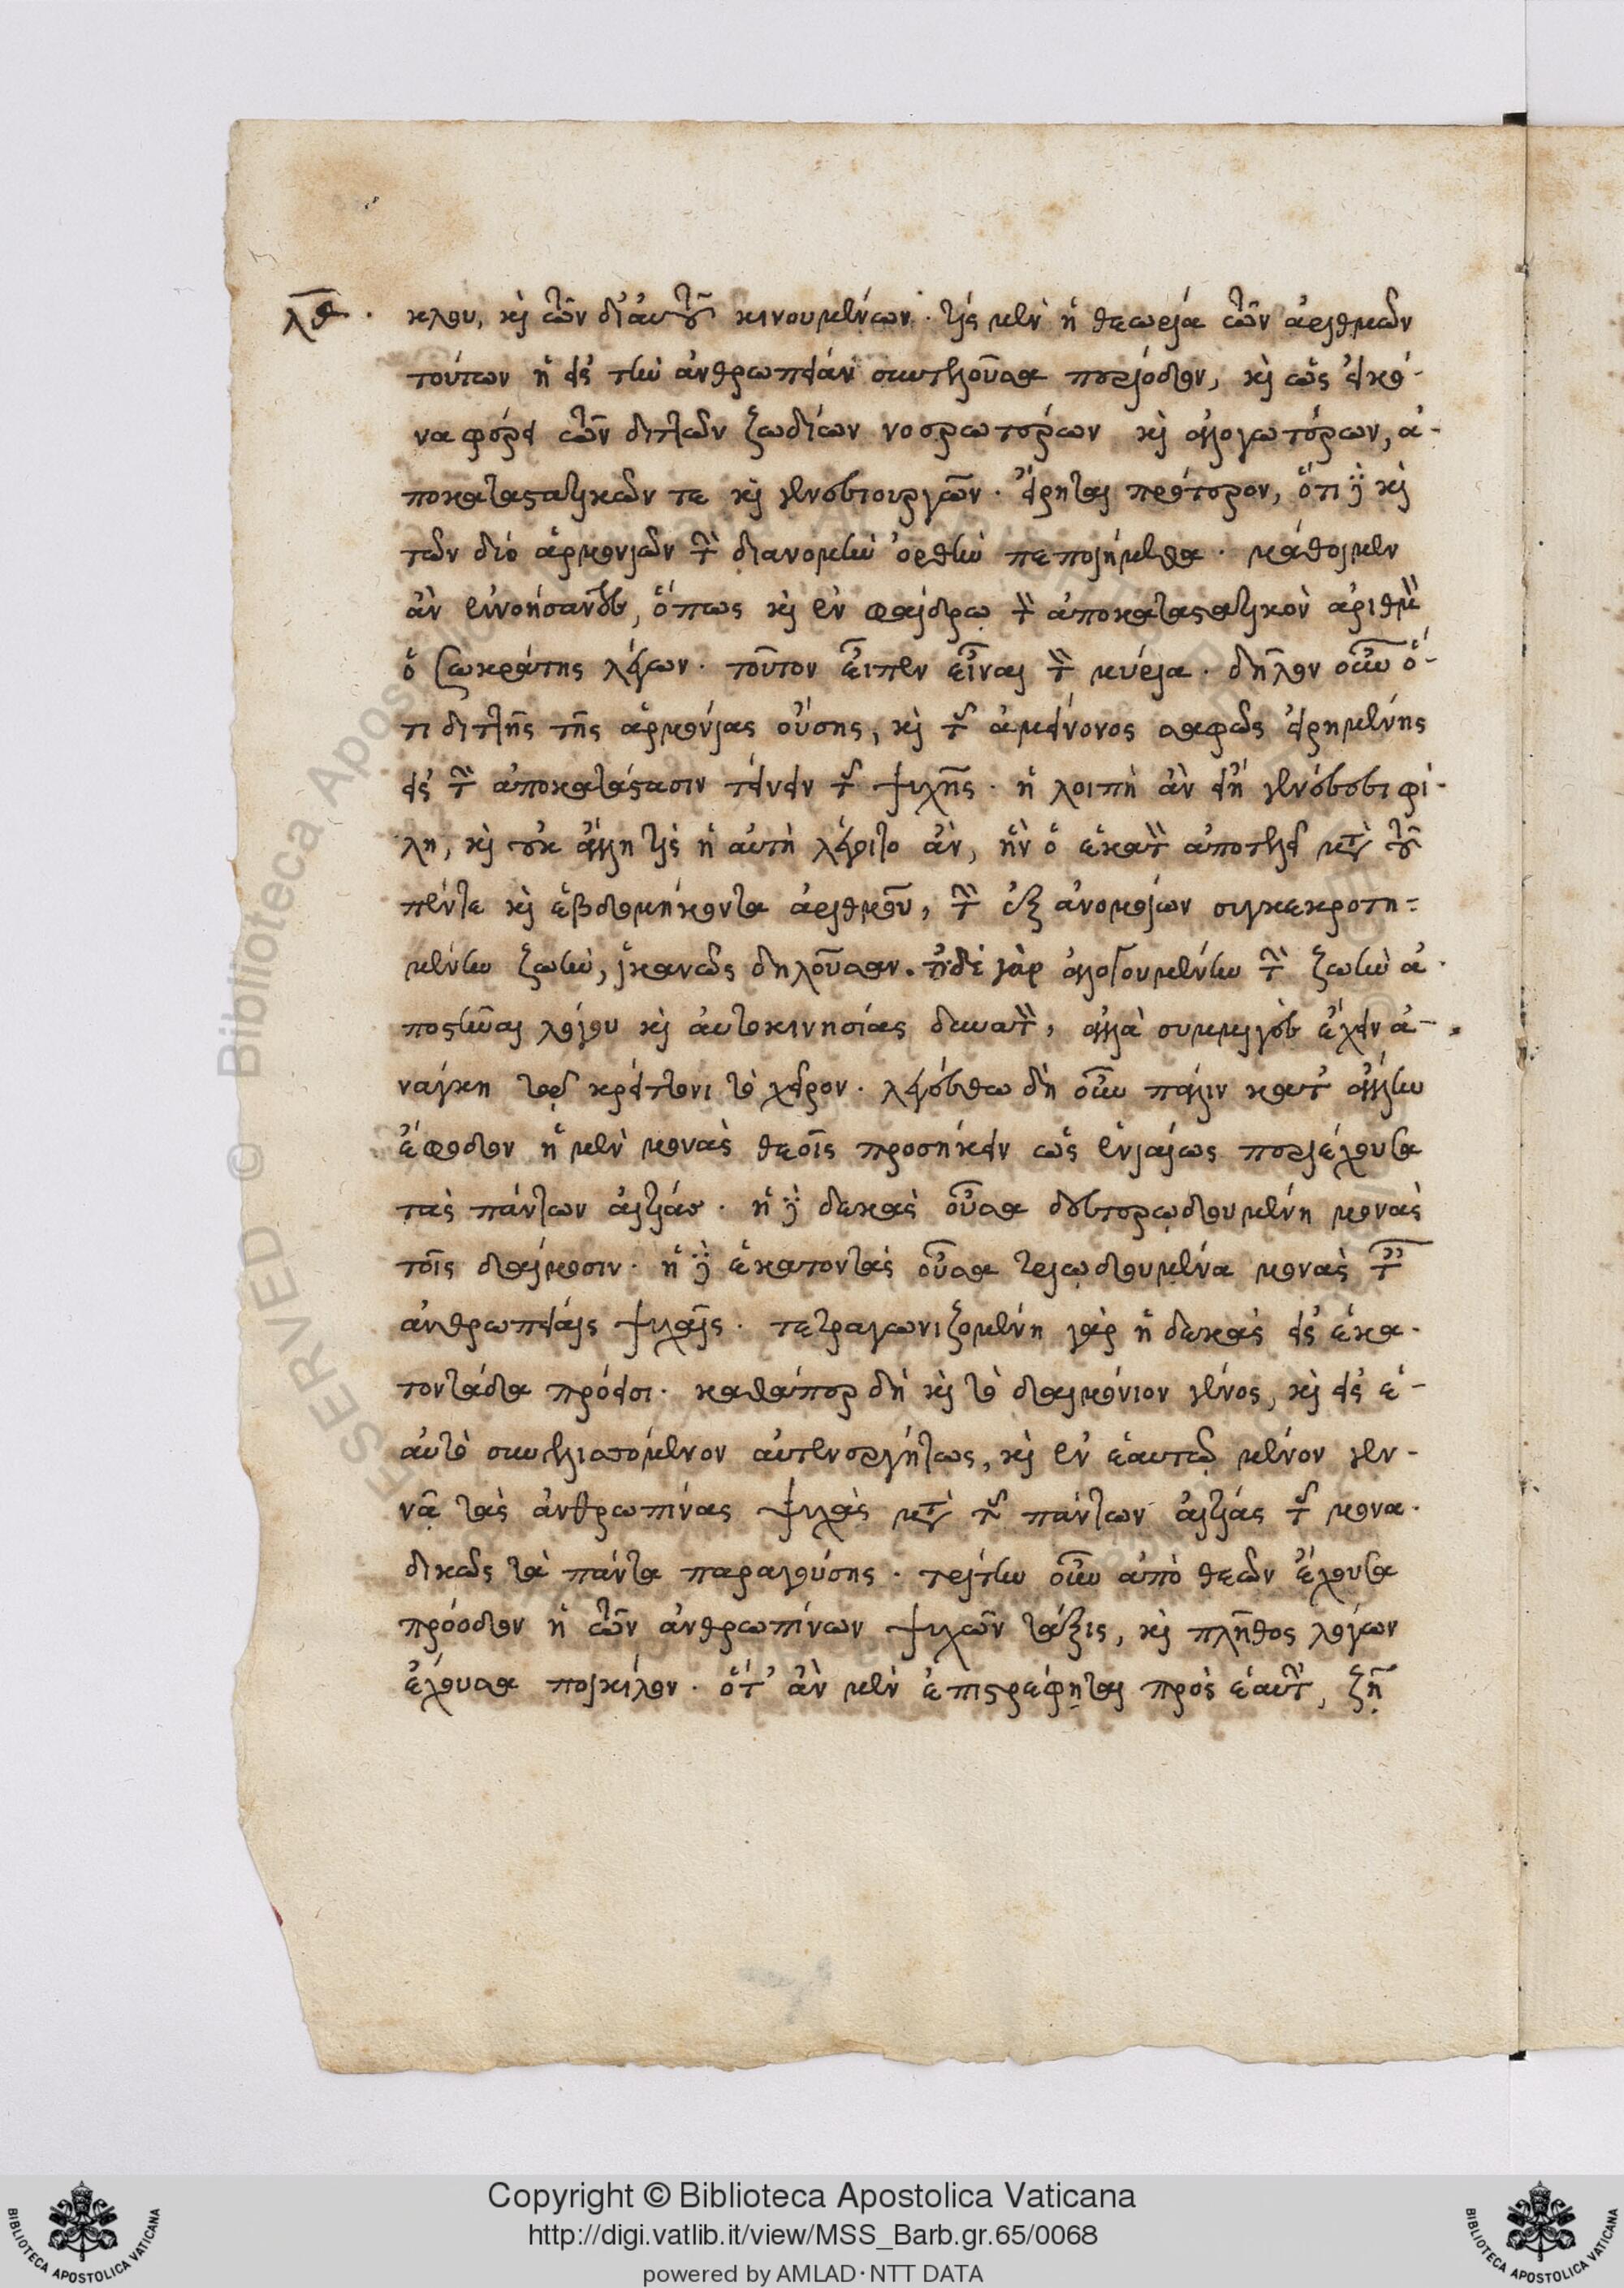 λθ. κλου, καὶ τῶν δι' αὐτοῦ κινουμένων. τίς μὲν ἡ θεωρία τῶν ἀριθμῶν
τούτων ἡ εἰς τὴν ἀνθρωπείαν συντείνουσα περίοδον, καὶ ὡς εἰκό-
να φέρει τῶν διττῶν ζωδίων νοερωτέρων καὶ ἀλογωτέρων, ἀ-
ποκαταστατικῶν τε καὶ γενεσιουργῶν. εἴρηται πρότερον, ὅτι δὲ καὶ
τῶν δύο ἁρμονιῶν τὴν διανομὴν ὀρθὴν πεποιήμεθα. μάθοιμεν
ἂν ἐννοήσαντες, ὅπως καὶ ἐν Φαίδρῳ τὸν ἀποκαταστατικὸν ἀριθμὸν
ὁ Σωκράτης λέγων. τοῦτον εἶπεν εἶναι τὸν κύρια. δῆλον οὖν ὅ-
τι διττῆς τῆς ἁρμονίας οὔσης, καὶ τῆς ἀμείνονος σαφῶς εἰρημένης
εἰς τὴν ἀποκατάστασιν τείνειν τῆς ψυχῆς. ἡ λοιπὴ ἂν εἴη γενέσει φί-
λη, καὶ οὐκ ἄλλη τίς ἡ αὐτὴ λέγοιτο ἂν, ἣν ὁ ἑκατὸν ἀποτελεῖ μετὰ τοῦ
πέντε καὶ ἑβδομήκοντα ἀριθμοῦ, τὴν ἐξ ἀνομοίων συγκεκροτη-
μένην ζωὴν, ἱκανῶς δηλοῦσαν. οὐδὲ γὰρ ἀλογουμένην τὴν ζωὴν ἀ-
ποστῆναι λόγου καὶ αὐτοκινησίας δυνατὸν, ἀλλὰ συμμιγὲς ἔχειν ἀ-
νάγκη τῷ κρείττονι τὸ χεῖρον. λεγέσθω δὴ οὖν πάλιν κατ' ἄλλην
ἔφοδον ἡ μὲν μονὰς θεοῖς προσήκειν ὡς ἑνιαίως περιέχουσα
τὰς πάντων αἰτίας. ἡ δὲ δεκὰς οὖσα δευτερῳδουμένη μονὰς
τοῖς δαίμοσιν. ἡ δὲ ἑκατοντὰς οὖσα τριῳδουμένα μονὰς ταῖς
ἀνθρωπείαις ψυχαῖς. τετραγωνιζομένη γὰρ ἡ δεκὰς εἰς ἑκα-
τοντάδα πρόεισι. καθάπερ δὴ καὶ τὸ δαιμόνιον γένος, καὶ εἰς ἑ-
αυτὸ συνελισσόμενον αὐτενεργήτως, καὶ ἐν ἑαυτῷ μένον γεν-
νᾷ τὰς ἀνθρωπίνας ψυχὰς μετὰ τῆς πάντων αἰτίας τῆς μονα-
δικῶς τὰ πάντα παραγούσης. τρίτην οὖν ἀπὸ θεῶν ἔχουσα
πρόοδον ἡ τῶν ἀνθρωπίνων ψυχῶν τάξις, καὶ πλῆθος λόγων
ἔχουσα ποικίλον. ὅτ' ἂν μὲν ἐπιστρέφηται πρὸς ἑαυτὴν, ζῇ
Copyright © Biblioteca Apostolica Vaticana
http://digi.vatlib.it/view/MSS_Barb.gr.65/0068
powered by AMLAD·NTT DATA